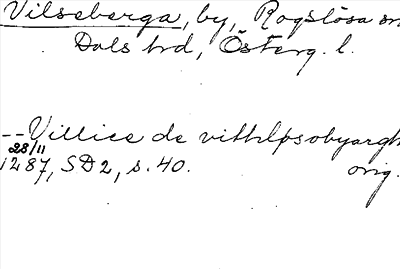 Vilseberga, by, Rogslösa sn
Dals hd, Österg. l.
--Villice de vithlpsobyargh
28/11
1287, SD2, s. 40. orig.